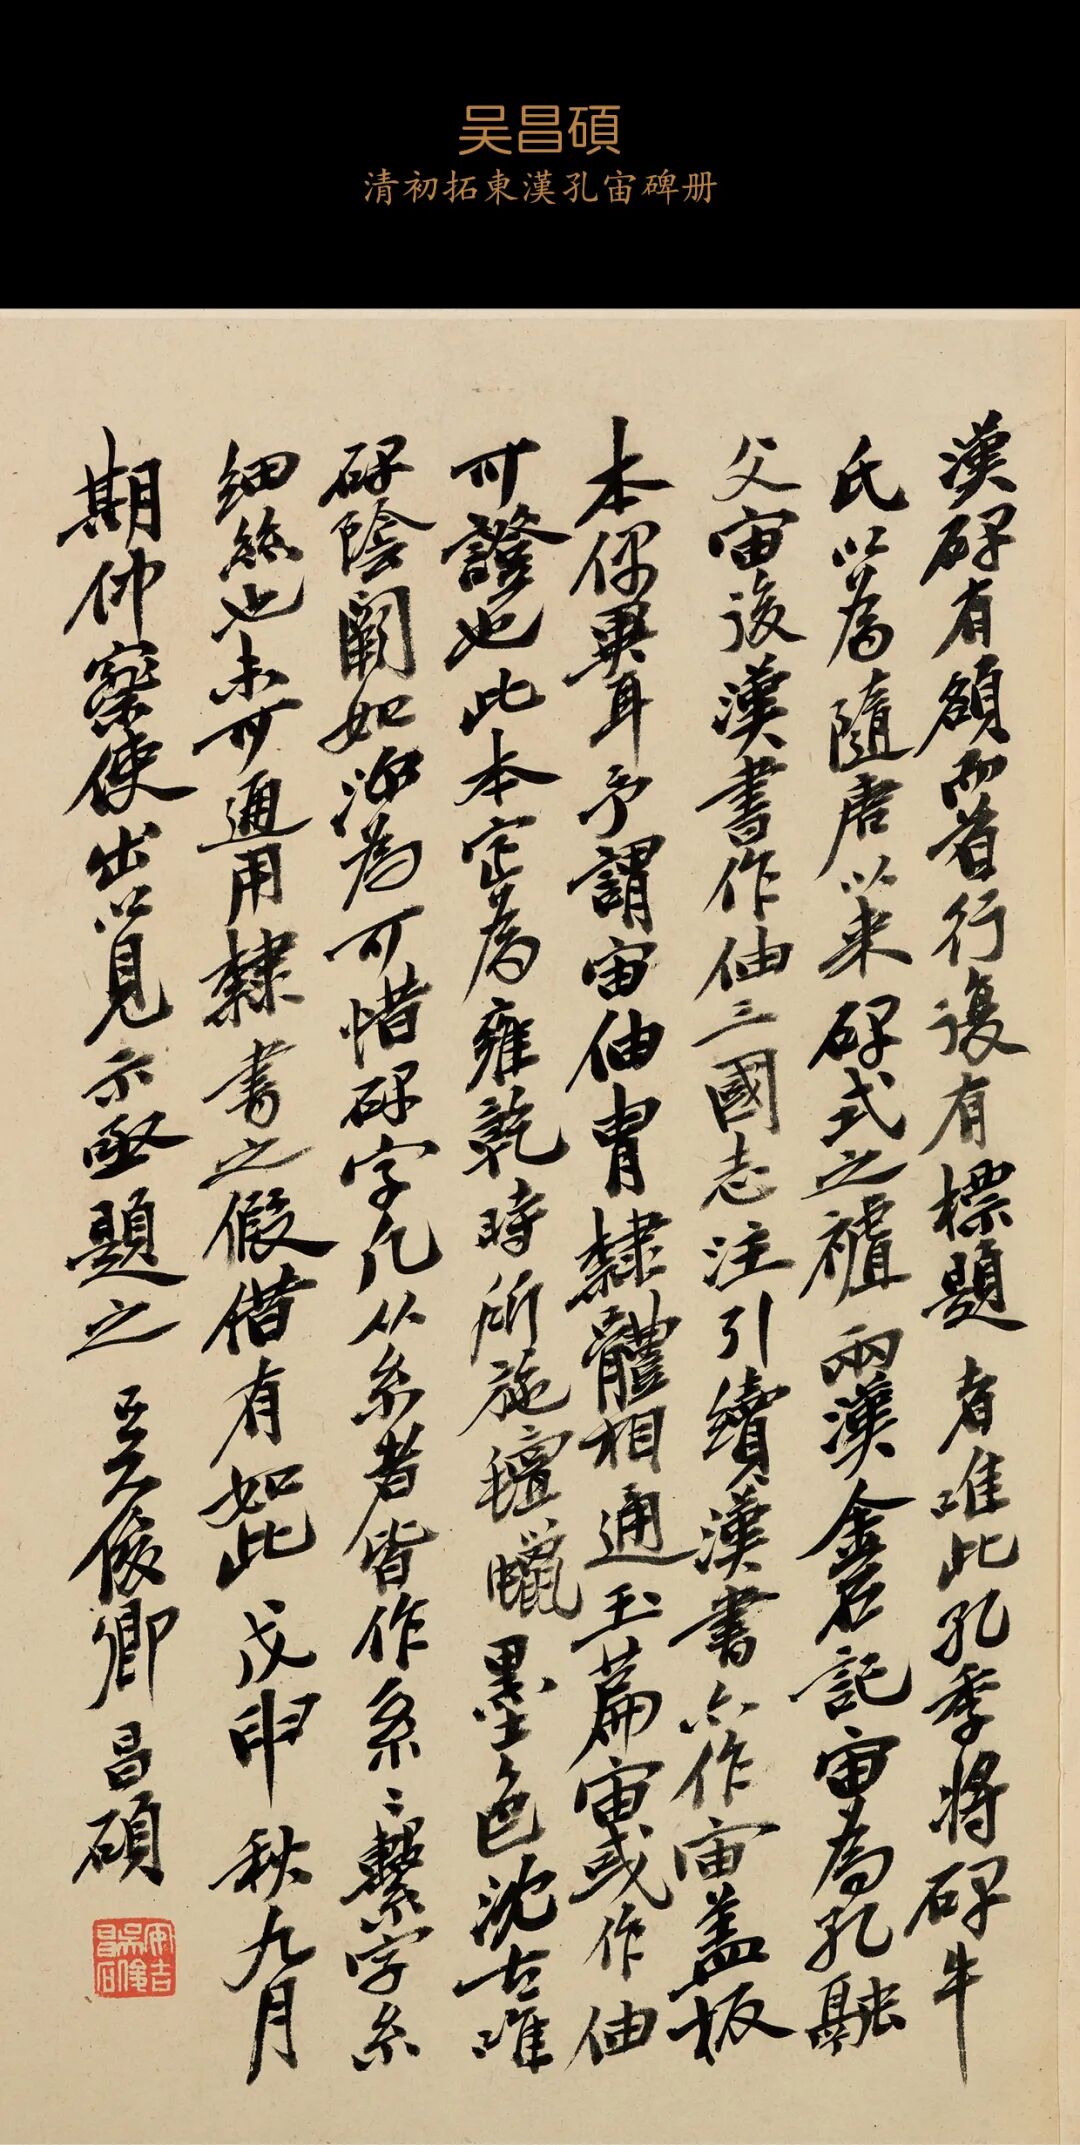 吴昌碩
清初拓東漢孔宙碑册
漢碑有額而首行復有標題者唯此孔季將碑牛
氏以為隨唐以来碑式之禮兩漢金石記宙為孔融
父宙後漢書作伷三國志注引續漢書亦作宙盖板
本偶異耳予謂宙伷胄隸體相通玉篇宙或作伷
可證也此本定為雍乾時所施氊蠟墨色沈古唯
碑陰闕如泐為可惜碑字凡从糸者皆作系〻繫字糸
細絲也未可通用隸書之假借有如此戊申秋九月
期仲察使出以見示亟題之吴俊卿昌碩
安吉吴俊昌石